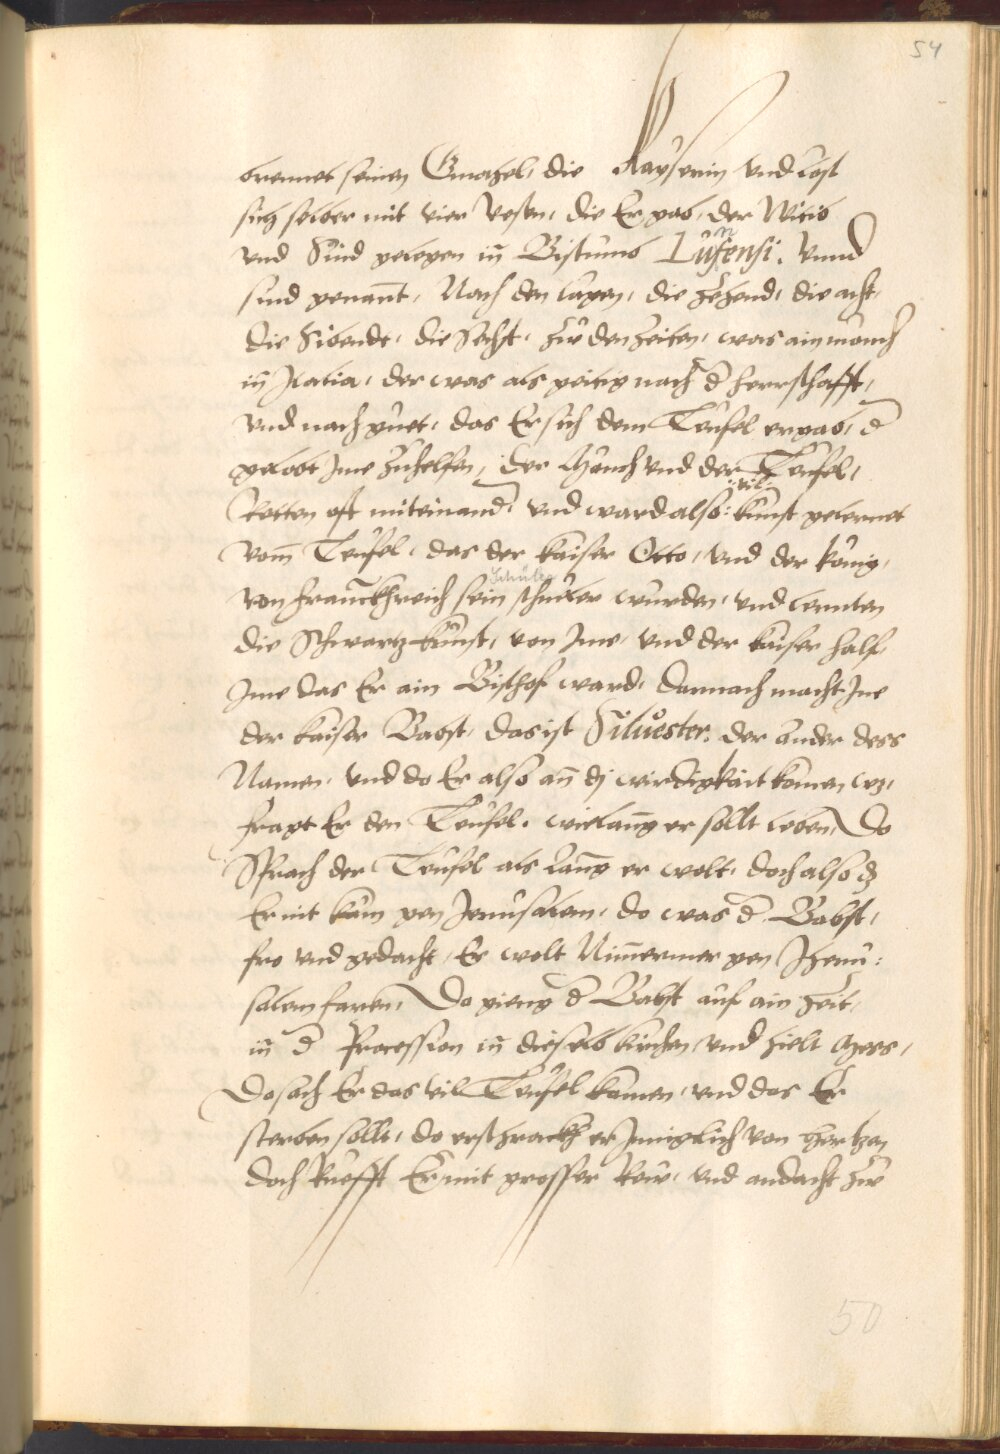 54
brennet seinen Gmahel, die Kayserin vnd lost
sich selber mit vier Vesten, die Er gab, der Witib
vnd Sind gelegen in̄ Bistumb Lunensi. Vnnd
sind genant, Nach den tagen, die Zehend, die acht,
die Sibende, die Sechst, Zw den Zeiten, was ain münch
in Jtalia, der was als geitig nach d̄ herrschafft,
vnd nach guet, das Er sich dem Teufel ergab, d̄
gelobt Jme Zuhelfen, der Munch vnd der Teufel,
Retten oft miteinand̄, vnd ward also :vil: kunst gelernet
vom̄ Teufel, das der kaiser Otto, vnd der könig,
von Franckhreich sein Schüler schueler wurden, vnd lernten
die Schwartz kunst, von Jme, vnd der kaiser half,
Jme das Er ain Bischof ward, darnach macht Jne
der kaiser Babst, das ist Siluester. der ander dess
Namen, vnd do Er also an̄ dj wirdigkait komen wz,
fragt Er den Teufel, wielang er sollt leben, Do
Sprach der Teufel als lang er wolt, doch also dz
Er nit käm gen Jerusalem, do was d̄ Babst,
fro vnd gedacht, Er wolt Nim̄ermer gen Jheru:
salem faren, Do gieng d̄ Babst auf ain Zeit,
in̄ d̄ Procession in̄ dieselb kirchen, vnd hielt Mess,
Do sach Er das vil Teufel komen, vnd das Er
sterben sollt, do erschrackh er Jnniglich von hertzen
doch Rüefft Er mit grosser Rew, vnd andacht Zw
50